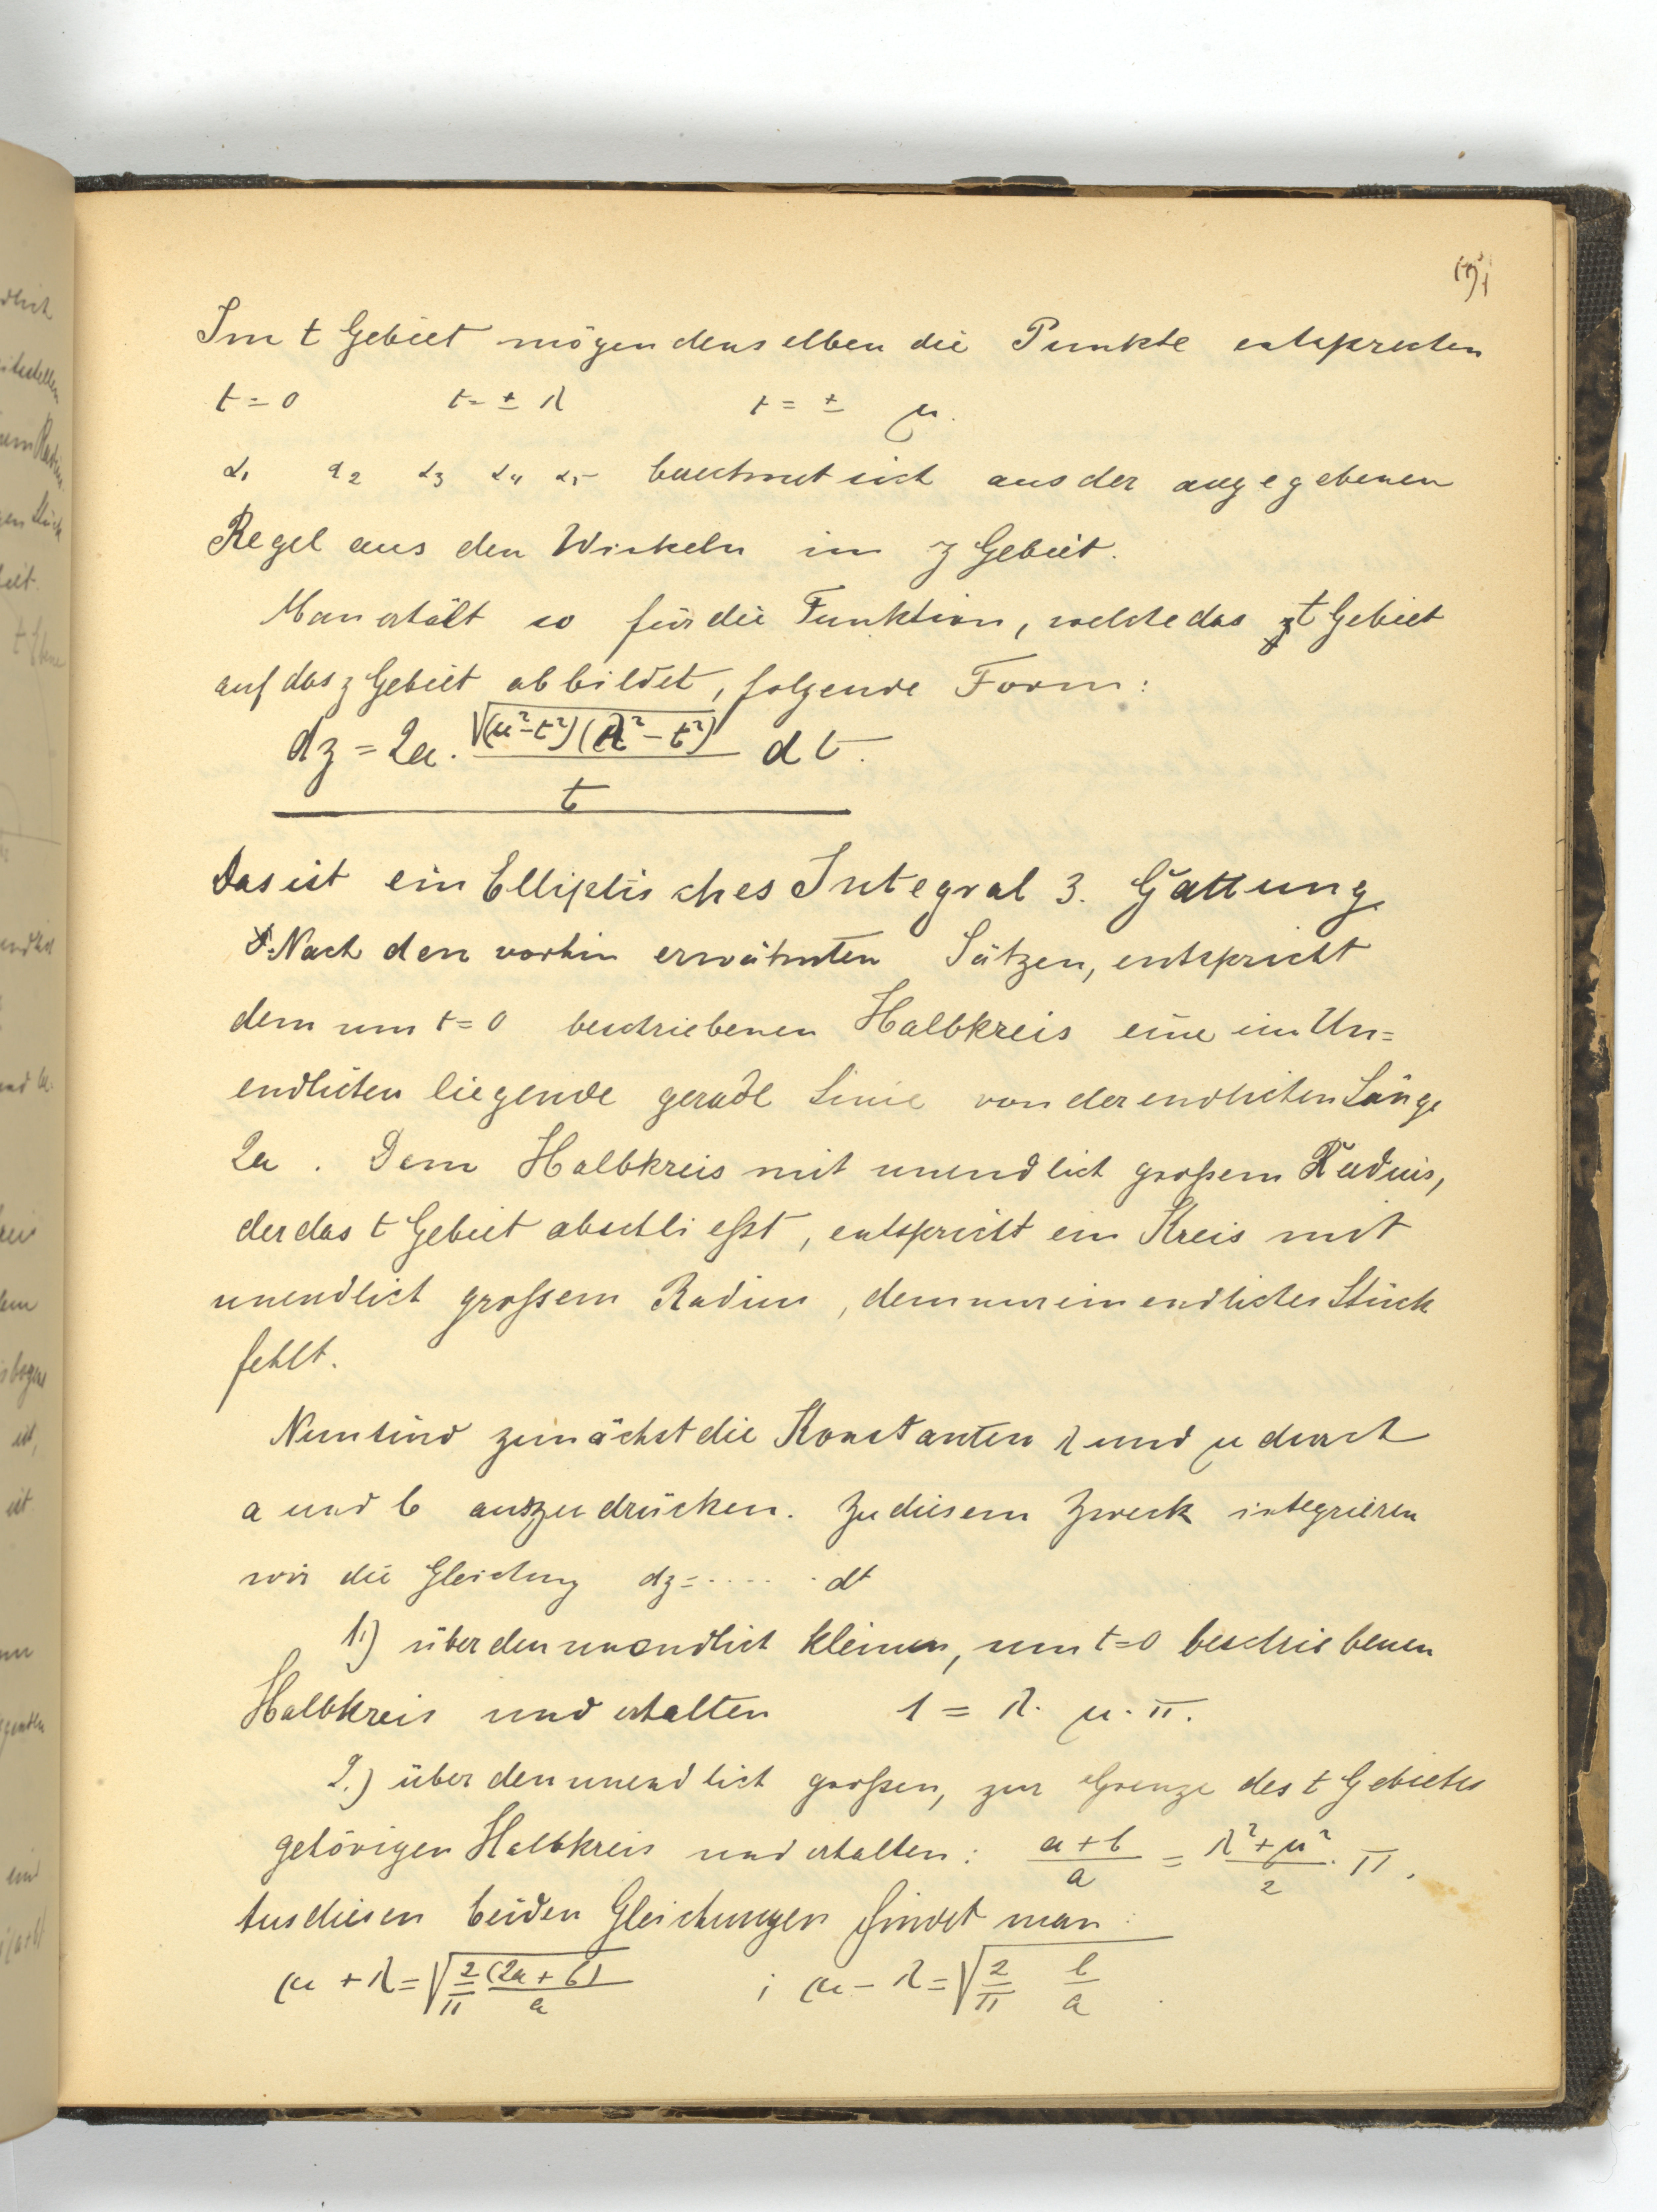 Im t Gebiet mögen denselben die Punkte entsprechen
t = 0 t = ± λ t = ± μ.
α₁ α₂ α₃ α₄ α₅ berechnet sich aus der angegebenen
Regel aus den Winkeln im z Gebiet.
Man erhält so für die Funktion, welche das t Gebiet
auf das z Gebiet abbildet, folgende Form:
dz = 2a · √((μ² - t²)(λ² - t²)) / t dt.
Das ist ein Elliptisches Integral 3. Gattung.
Nach den vorhin erwähnten Sätzen, entspricht
dem um t = 0 beschriebenen Halbkreis eine im Un=
endlichen liegende gerade Linie von der endlichen Länge
2a. Dem Halbkreis mit unendlich großem Radius,
der das t Gebiet abschließt, entspricht ein Kreis mit
unendlich großem Radius, dem nur ein endliches Stück
fehlt.
Nun sind zunächst die Konstanten λ und μ durch
a und b auszudrücken. Zu diesem Zweck integrieren
wir die Gleichung dz = ..... dt
1.) über den unendlich kleinen, um t = 0 beschriebenen
Halbkreis und erhalten 1 = λ · μ · π.
2.) über den unendlich großen, zur Grenze des t Gebietes
gehörigen Halbkreis und erhalten: (a + b)/a = (λ² + μ²)/2 · π.
Aus diesen beiden Gleichungen findet man:
μ + λ = √(2/π (2a + b)/a) ; μ - λ = √(2/π b/a).